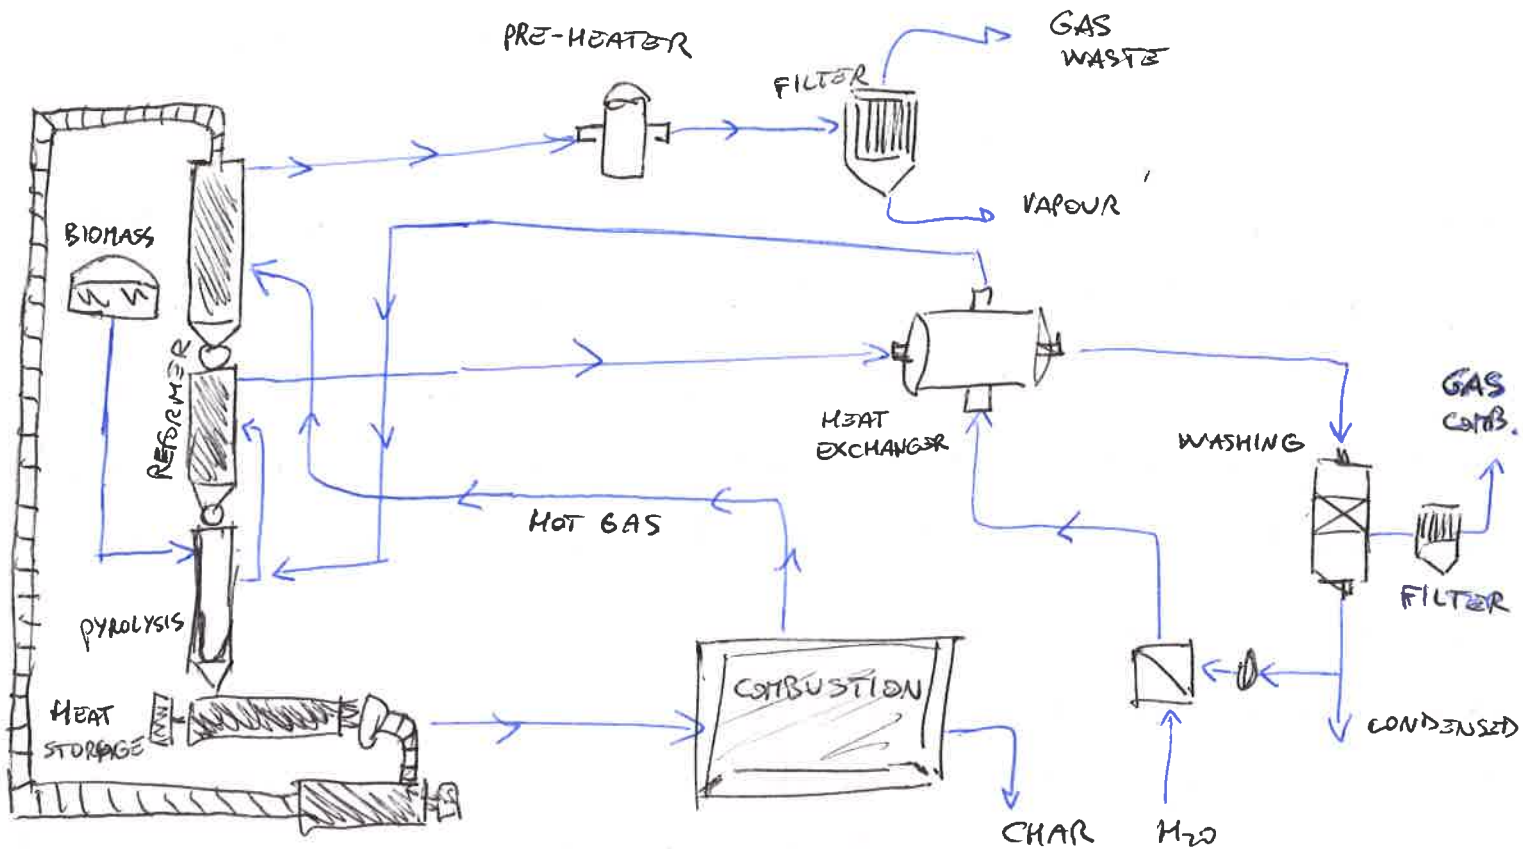 PRE-HEATER
GAS
WASTE
FILTER
VAPOUR
BIOMASS
REFORMER
HEAT
EXCHANGER
WASHING
GAS
COMB.
HOT GAS
FILTER
PYROLYSIS
HEAT
STORAGE
COMBUSTION
CONDENSED
CHAR
H2O